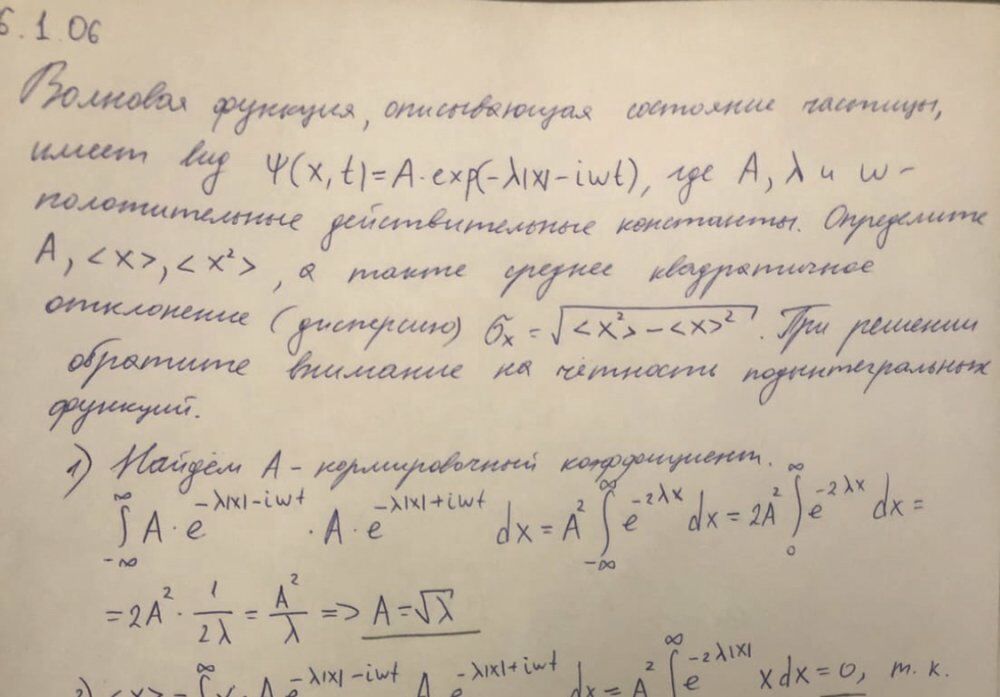 6.1.06
Волновая функция, описывающая состояние частицы,
имеет вид Ψ(x,t)=A·exp(-λ|x|-iωt), где A, λ и ω -
положительные действительные константы. Определите
A, <x>, <x²>, а также среднее квадратичное
отклонение (дисперсию) σₓ = √(<x²> - <x>²). При решении
обратите внимание на чётности подынтегральных
функций.
1) Найдём A - нормировочный коэффициент.
∫_{-∞}^{∞} A·e^{-λ|x|-iωt} · A·e^{-λ|x|+iωt} dx = A² ∫_{-∞}^{∞} e^{-2λx} dx = 2A² ∫_{0}^{∞} e^{-2λx} dx =
= 2A² · 1/2λ = A²/λ => A = √λ
2) <x> = ∫^{∞} x · A e^{-λ|x|-iωt} A e^{-λ|x|+iωt} dx = A² ∫^{∞} e^{-2λ|x|} x dx = 0, т.к.